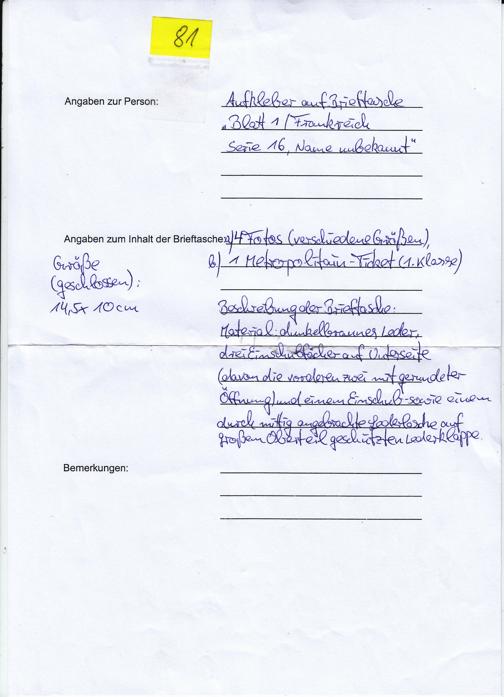 81
Angaben zur Person:
Aufkleber auf Brieftasche
„Blatt 1/Frankreich
Serie 16, Name unbekannt"
Angaben zum Inhalt der Brieftasche:
a) 4 Fotos (verschiedene Größen),
b) 1 Metropolitain-Ticket (1. Klasse)
Größe
(geschlossen):
14,5 x 10 cm
Beschreibung der Brieftasche:
Material: dunkelbraunes Leder,
drei Einschubfächer auf Unterseite
(davon die vorderen zwei mit gerundeter
Öffnung) und einem Einschub- sowie einem
durch mittig angebrachte Lederlasche auf
großem Oberteil geschützten Lederklappe.
Bemerkungen: